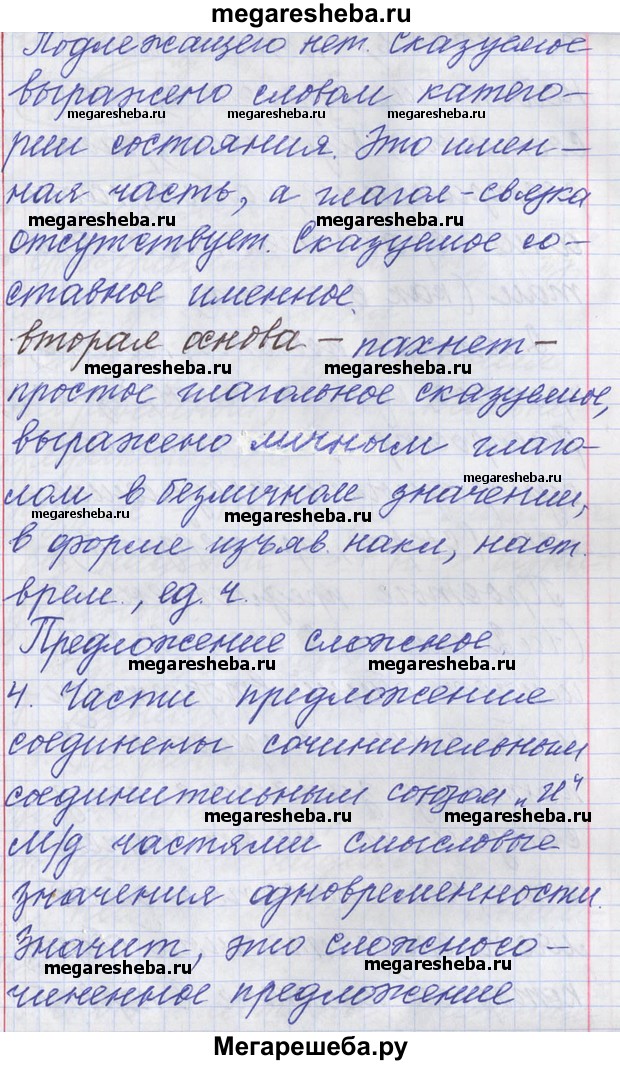 megaresheba.ru
Подлежащего нет. Сказуемое
выражено словом катего-
megaresheba.ru megaresheba.ru megaresheba.ru
рии состояния. Это имен-
ная часть, а глагол-связка
megaresheba.ru megaresheba.ru
отсутствует. Сказуемое со-
ставное именное.
вторая основа - пахнет -
megaresheba.ru megaresheba.ru
простое глагольное сказуемое,
выражено личным глаго-
megaresheba.ru
лом в безличном значении,
megaresheba.ru megaresheba.ru
в форме изъяв. накл, наст.
врем., ед. ч.
Предложение сложное.
megaresheba.ru megaresheba.ru
4. Части предложения
соединены сочинительным
соединительным союзом „и"
megaresheba.ru megaresheba.ru
М/д частями смысловые
значения одновременности.
Значит, это сложносо-
megaresheba.ru megaresheba.ru
чиненное предложение
Мегарешеба.ру